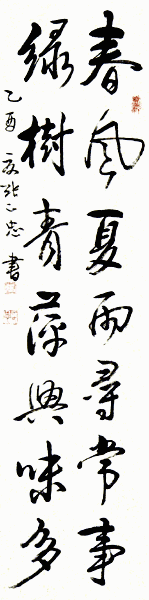 春風夏雨尋常事
綠樹青萍興味多
乙酉夏張正忠書